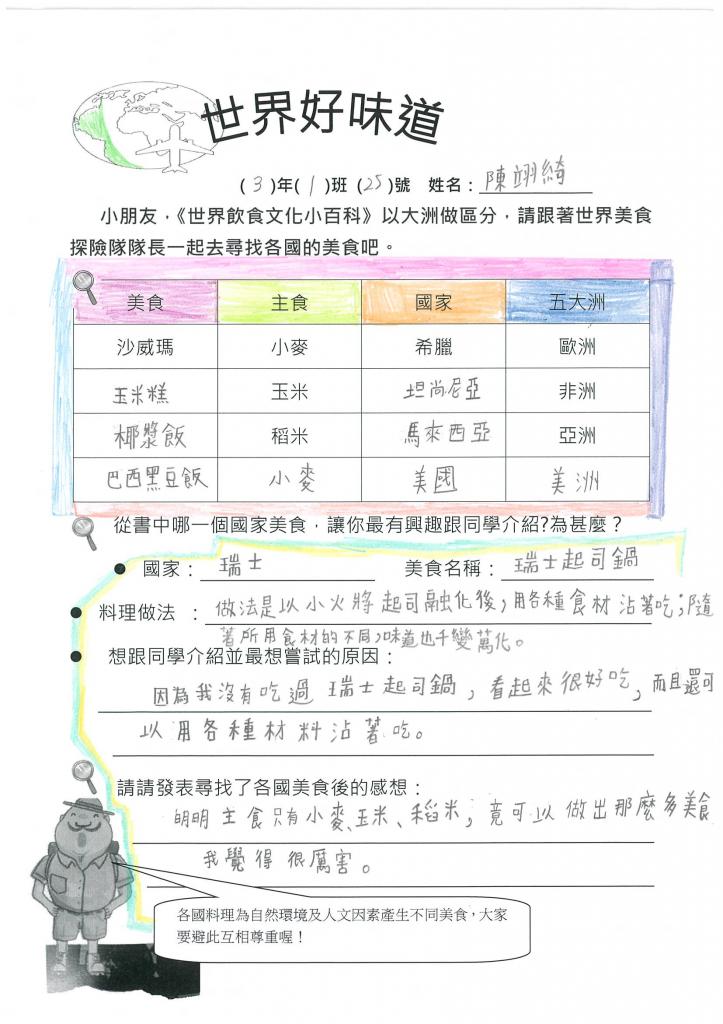 世界好味道
( 3 )年( 1 )班 (25)號 姓名：陳翊綺
小朋友，《世界飲食文化小百科》以大洲做區分，請跟著世界美食
探險隊隊長一起去尋找各國的美食吧。
美食 主食 國家 五大洲
沙威瑪 小麥 希臘 歐洲
玉米糕 玉米 坦尚尼亞 非洲
椰漿飯 稻米 馬來西亞 亞洲
巴西黑豆飯 小麥 美國 美洲
從書中哪一個國家美食，讓你最有興趣跟同學介紹?為甚麼？
● 國家：瑞士 美食名稱：瑞士起司鍋
● 料理做法 ：做法是以小火將起司融化後，用各種食材沾著吃；隨
著所用食材的不同，味道也千變萬化。
● 想跟同學介紹並最想嘗試的原因：
因為我沒有吃過瑞士起司鍋，看起來很好吃，而且還可
以用各種材料沾著吃。
請請發表尋找了各國美食後的感想：
明明主食只有小麥、玉米、稻米，竟可以做出那麼多美食
我覺得很厲害。
各國料理為自然環境及人文因素產生不同美食，大家
要避此互相尊重喔！